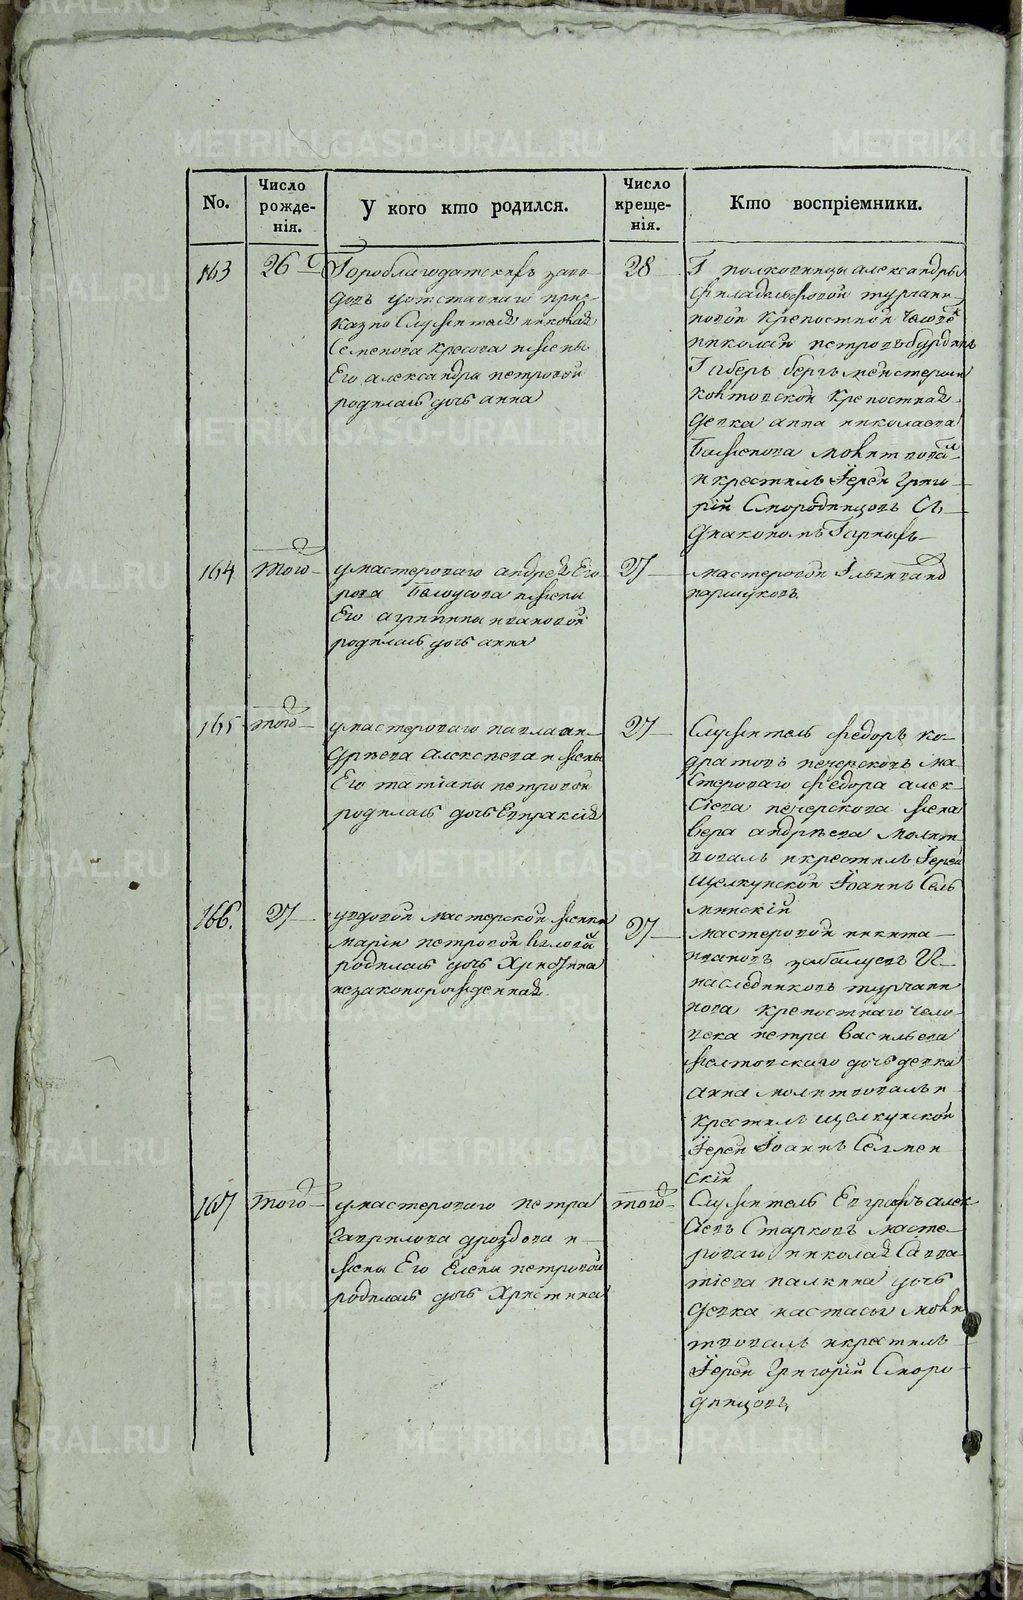 No.
Число рожде- нія.
У кого кто родился.
Число креще- нія.
Кто воспріемники.
163
26
Гороблагодатскихъ заво
довъ уотставнаго при-
казно Служителя николая
Семенова
и жены
Его александра петровой
родилась дочь анна
28
Г полковницы александры
турчани-
новой Крепостной Челове
николай петровъ
Г Обера бергъ мейстерши
Крепостная
девка анна николаева
Баженова молитвова
и крестилъ Іерей Григо
рій Смородинцовъ Съ
диакономъ
164
того
умастероваго андрея Его
рова Белоусова и жены
Его агрипины ивановой
родилась дочь анна
27
мастеровой
паршуковъ
165
того
умастероваго павла ан-
дреева алексеева и жены
Его татіаны петровой
родилась дочь Евпраксия
27
Служитель федоръ ко-
дратовъ печерсковъ ма-
стероваго федора алек-
сіева печерскова жена
вера андреева молит
вовалъ и крестилъ Іерей
щелкунской Іоаннъ Сель
минскій
166.
27
увдовой мастерской женки
маріи петровой беловой
родилась дочь Христина
незаконорожденная
27
мастеровой никита
ивановъ
И
наследниковъ турчани
нова крепостнаго чело
века петра васильева
желтовскаго дочь девка
анна молитвовалъ и
крестилъ щелкунской
Іерей Іоаннъ Селмен
скій
167
того
умастероваго петра
гаврилова дроздова и
жены Его Елены петровой
родилась дочь Христина
того
Служитель Евграфъ алек
сіевъ Старковъ масте-
роваго николая Савва
тіева палкина дочь
девка настасья моли
твовалъ и крестилъ
Іерей Григорій Сморо
динцовъ
METRIKI.GASO-URAL.RU